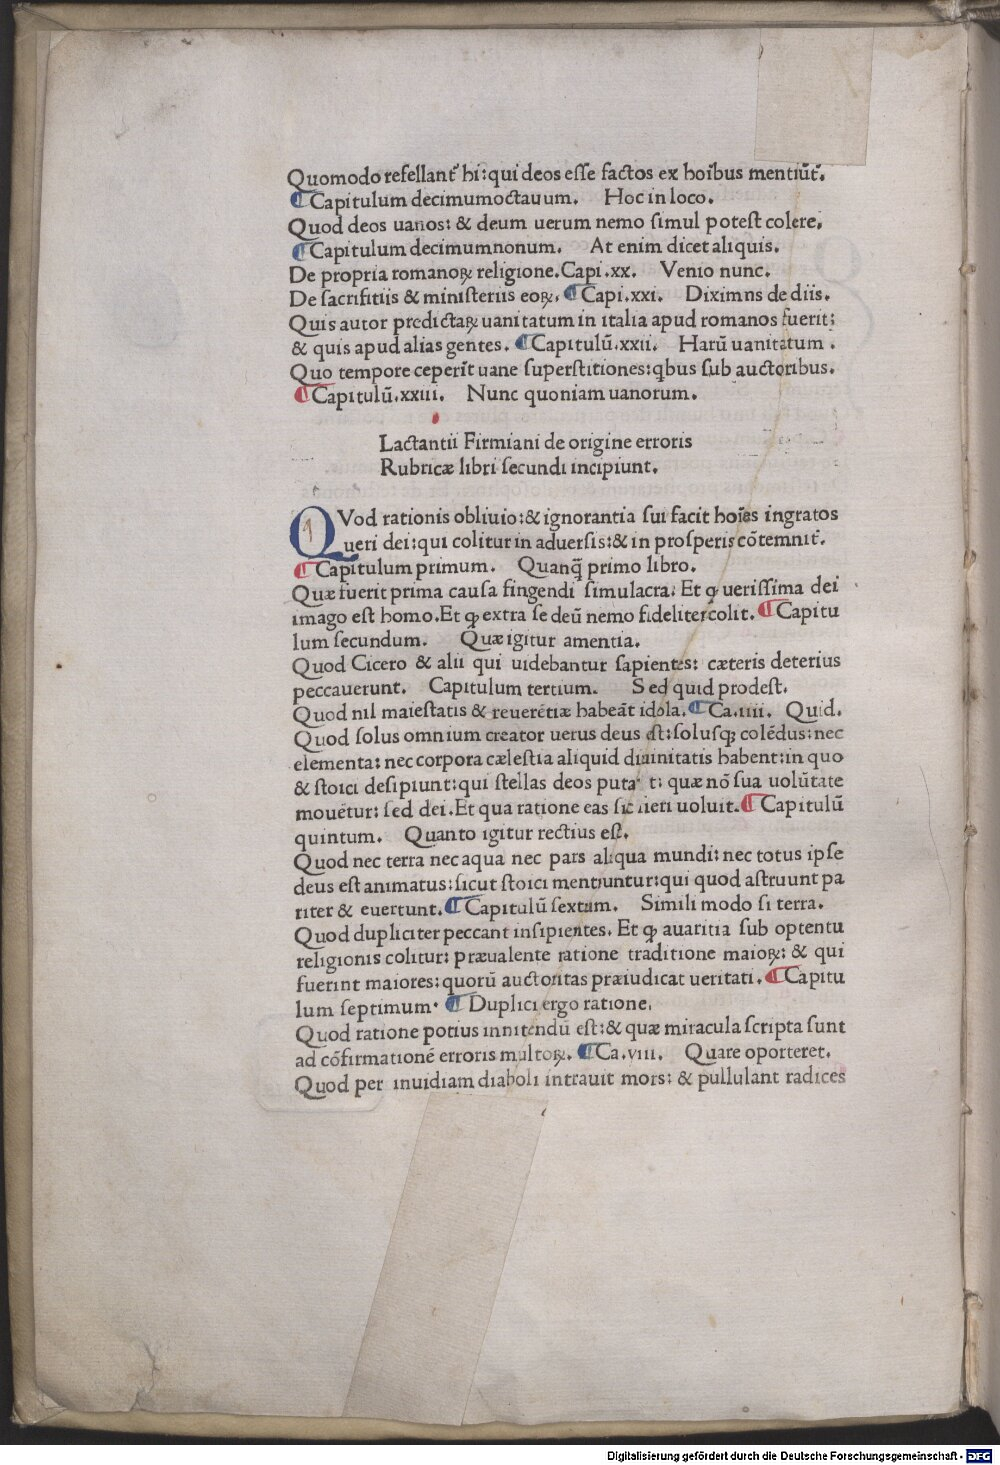 Quomodo refellant᷑ hi: qui deos eſſe factos ex hoı̄bus mentiūt᷑.
¶ Capitulum decimumoctauum. Hoc in loco.
Quod deos uanos: & deum uerum nemo ſimul poteſt colere.
¶ Capitulum decimumnonum. At enim dicet aliquis.
De propria romanoꝝ religione. Capi .xx. Venio nunc.
De ſacrifitiis & miniſteriis eoꝝ. ¶ Capi .xxi. Diximns de diis.
Quis autor predictaꝝ uanitatum in italia apud romanos fuerit:
& quis apud alias gentes. ¶ Capitulū .xxii. Harū uanitatum .
Quo tempore ceperīt uane ſuperſtitiones: qbus ſub auctoribus.
¶ Capitulū .xxiii. Nunc quoniam uanorum.
Lactantii Firmiani de origine erroris
Rubricæ libri ſecundi incipiunt.
QVod rationis obliuio: & ignorantia ſui facit hoı̄es ingratos
ueri dei: qui colitur in aduerſis: & in proſperis cōtemnit᷑.
¶ Capitulum primum. Quanq̄ primo libro.
Quæ fuerit prima cauſa fingendi ſimulacra. Et ꝙ ueriſſima dei
imago eſt homo. Et ꝙ extra ſe deū nemo fideliter colit. ¶ Capitu
lum ſecundum. Quæ igitur amentia.
Quod Cicero & alii qui uidebantur ſapientes: cæteris deterius
peccauerunt. Capitulum tertium. Sed quid prodeſt.
Quod nil maieſtatis & reuerētiæ habeāt idola. ¶ Ca .iiii. Quid.
Quod ſolus omnium creator uerus deus eſt: ſoluſqꝫ colēdus: nec
elementa: nec corpora cæleſtia aliquid diuinitatis habent: in quo
& ſtoici deſipiunt: qui ſtellas deos puta t: quæ nō ſua uolūtate
mouētur: ſed dei. Et qua ratione eas ſic fieri uoluit. ¶ Capitulū
quintum. Quanto igitur rectius eſt.
Quod nec terra nec aqua nec pars aliqua mundi: nec totus ipſe
deus eſt animatus: ſicut ſtoici mentiuntur: qui quod aſtruunt pa
riter & euertunt. ¶ Capitulū ſextum. Simili modo ſi terra.
Quod dupliciter peccant inſipientes. Et ꝙ auaritia ſub optentu
religionis colitur: præualente ratione traditione maioꝝ: & qui
fuerint maiores: quorū auctoritas præiudicat ueritati. ¶ Capitu
lum ſeptimum. ¶ Duplici ergo ratione.
Quod ratione potius innitendū eſt: & quæ miracula ſcripta ſunt
ad cōfirmationē erroris multoꝝ. ¶ Ca .viii. Quare oporteret.
Quod per inuidiam diaboli intrauit mors: & pullulant radices
Digitalisierung gefördert durch die Deutsche Forschungsgemeinschaft - DFG